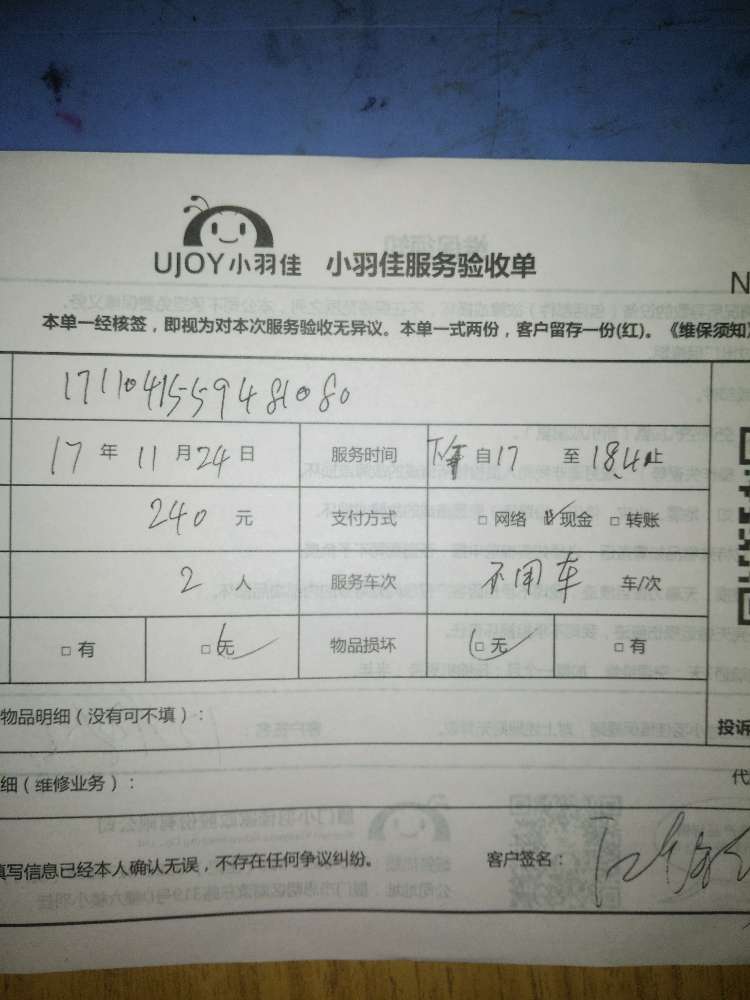 UJOY小羽佳 小羽佳服务验收单
N
本单一经核签，即视为对本次服务验收无异议。本单一式两份，客户留存一份(红)。《维保须知》
17年11月24日 服务时间 下午自17至18.40止
240元 支付方式 □网络 □现金 □转账
2人 服务车次 不用车 车/次
□有 □无 物品损坏 □无 □有
物品明细（没有可不填）：
投诉
细（维修业务）：
代
填写信息已经本人确认无误，不存在任何争议纠纷。 客户签名：